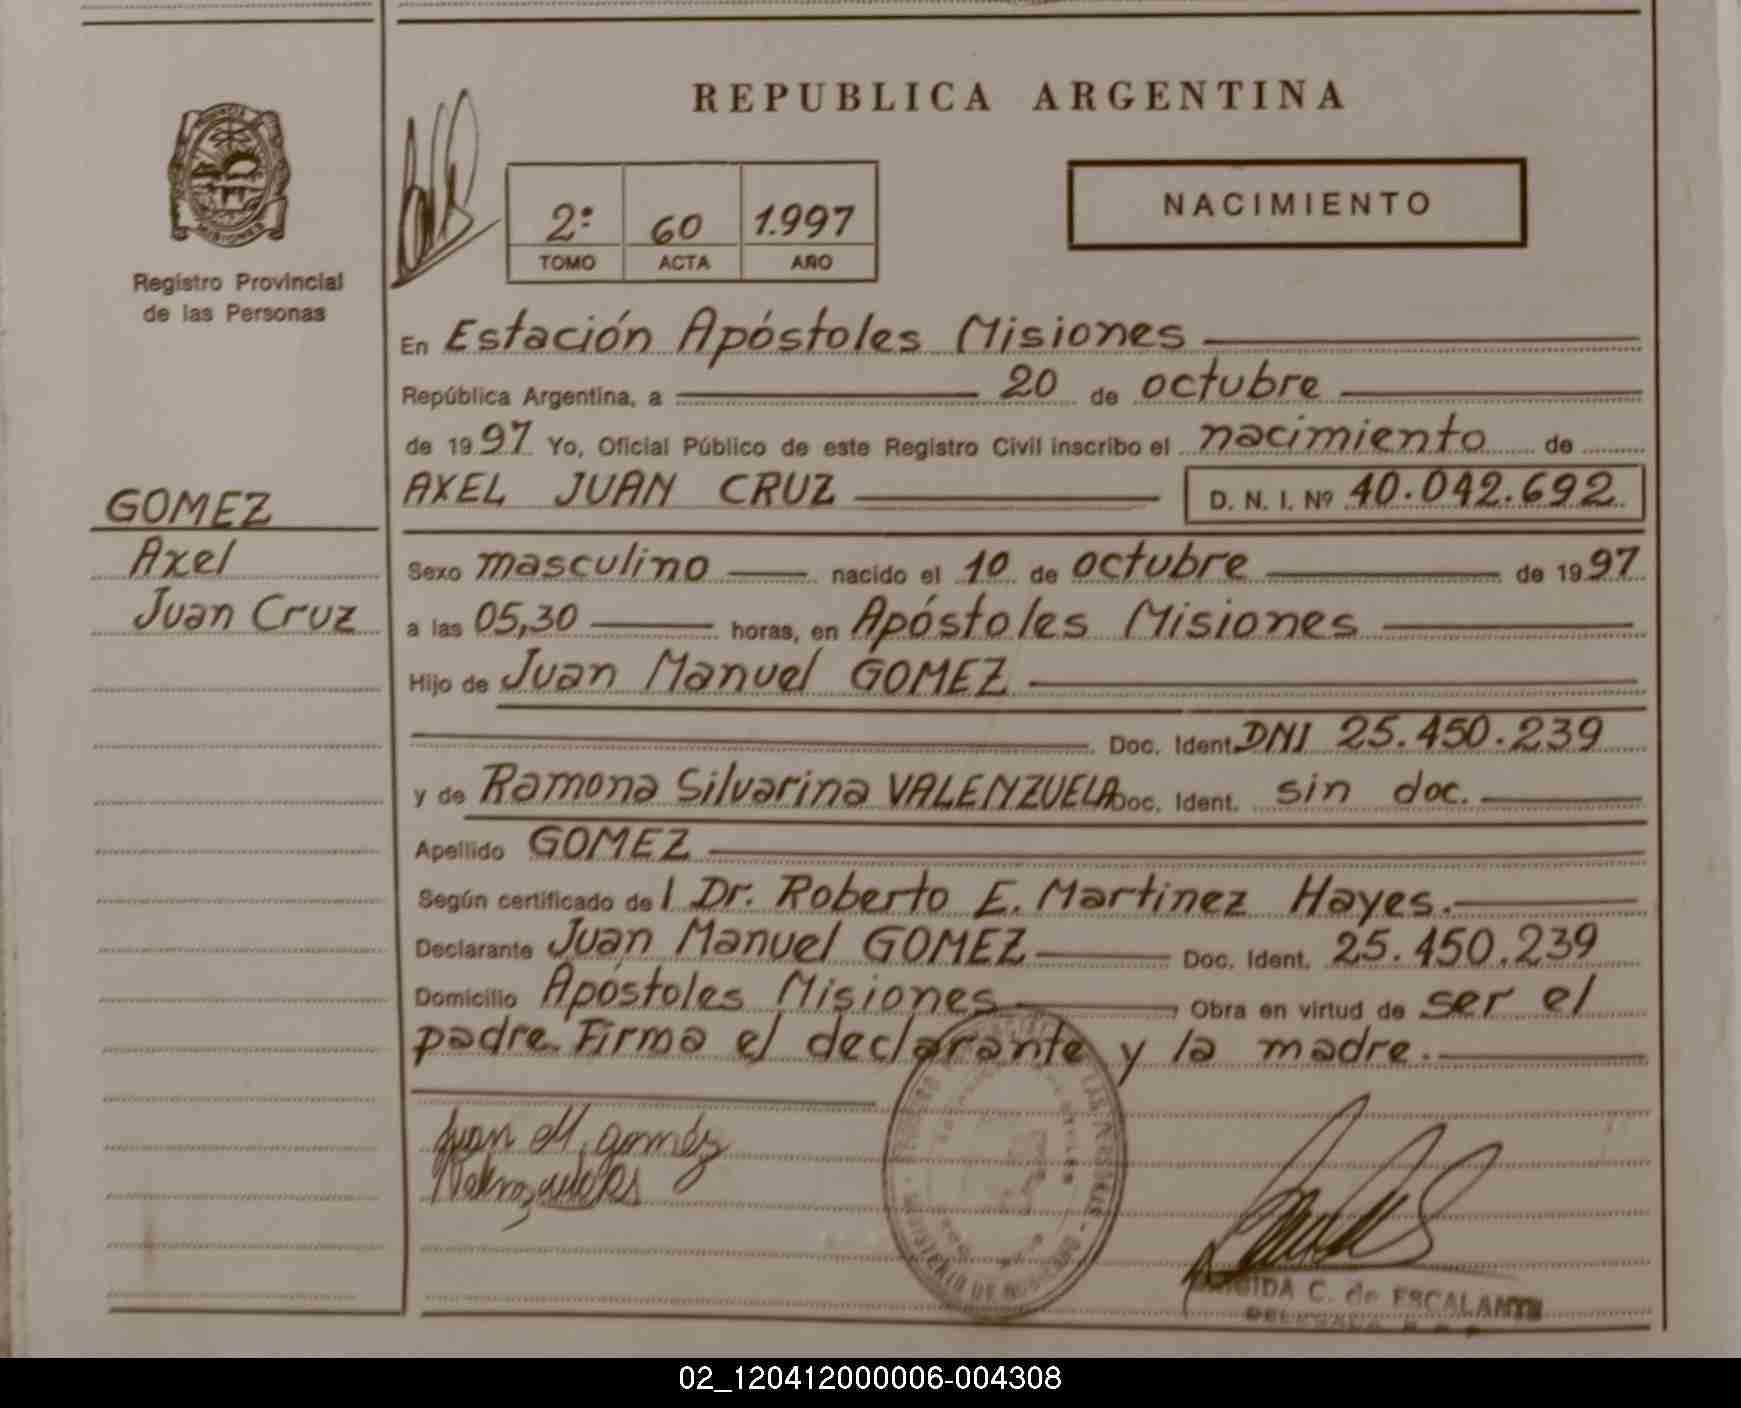 REPUBLICA ARGENTINA
NACIMIENTO
2º 60 1.997
TOMO ACTA AÑO
MISIONES
Registro Provincial
de las Personas
En Estación Apóstoles Misiones
República Argentina, a 20 de octubre
de 1997 Yo, Oficial Público de este Registro Civil inscribo el nacimiento de
AXEL JUAN CRUZ D. N. I. Nº 40.042.692
GOMEZ
Axel
Juan Cruz
Sexo masculino nacido el 10 de octubre de 1997
a las 05,30 horas, en Apóstoles Misiones
Hijo de Juan Manuel GOMEZ
Doc. Ident. DNI 25.450.239
y de Ramona Silvarina VALENZUELA Doc. Ident. sin doc.
Apellido GOMEZ
Según certificado del Dr. Roberto E. Martinez Hayes.
Declarante Juan Manuel GOMEZ Doc. Ident. 25.450.239
Domicilio Apóstoles Misiones Obra en virtud de ser el
padre. Firma el declarante y la madre.
Juan M. gomez
MINISTERIO DE
C. de ESCALANTE
02_120412000006-004308